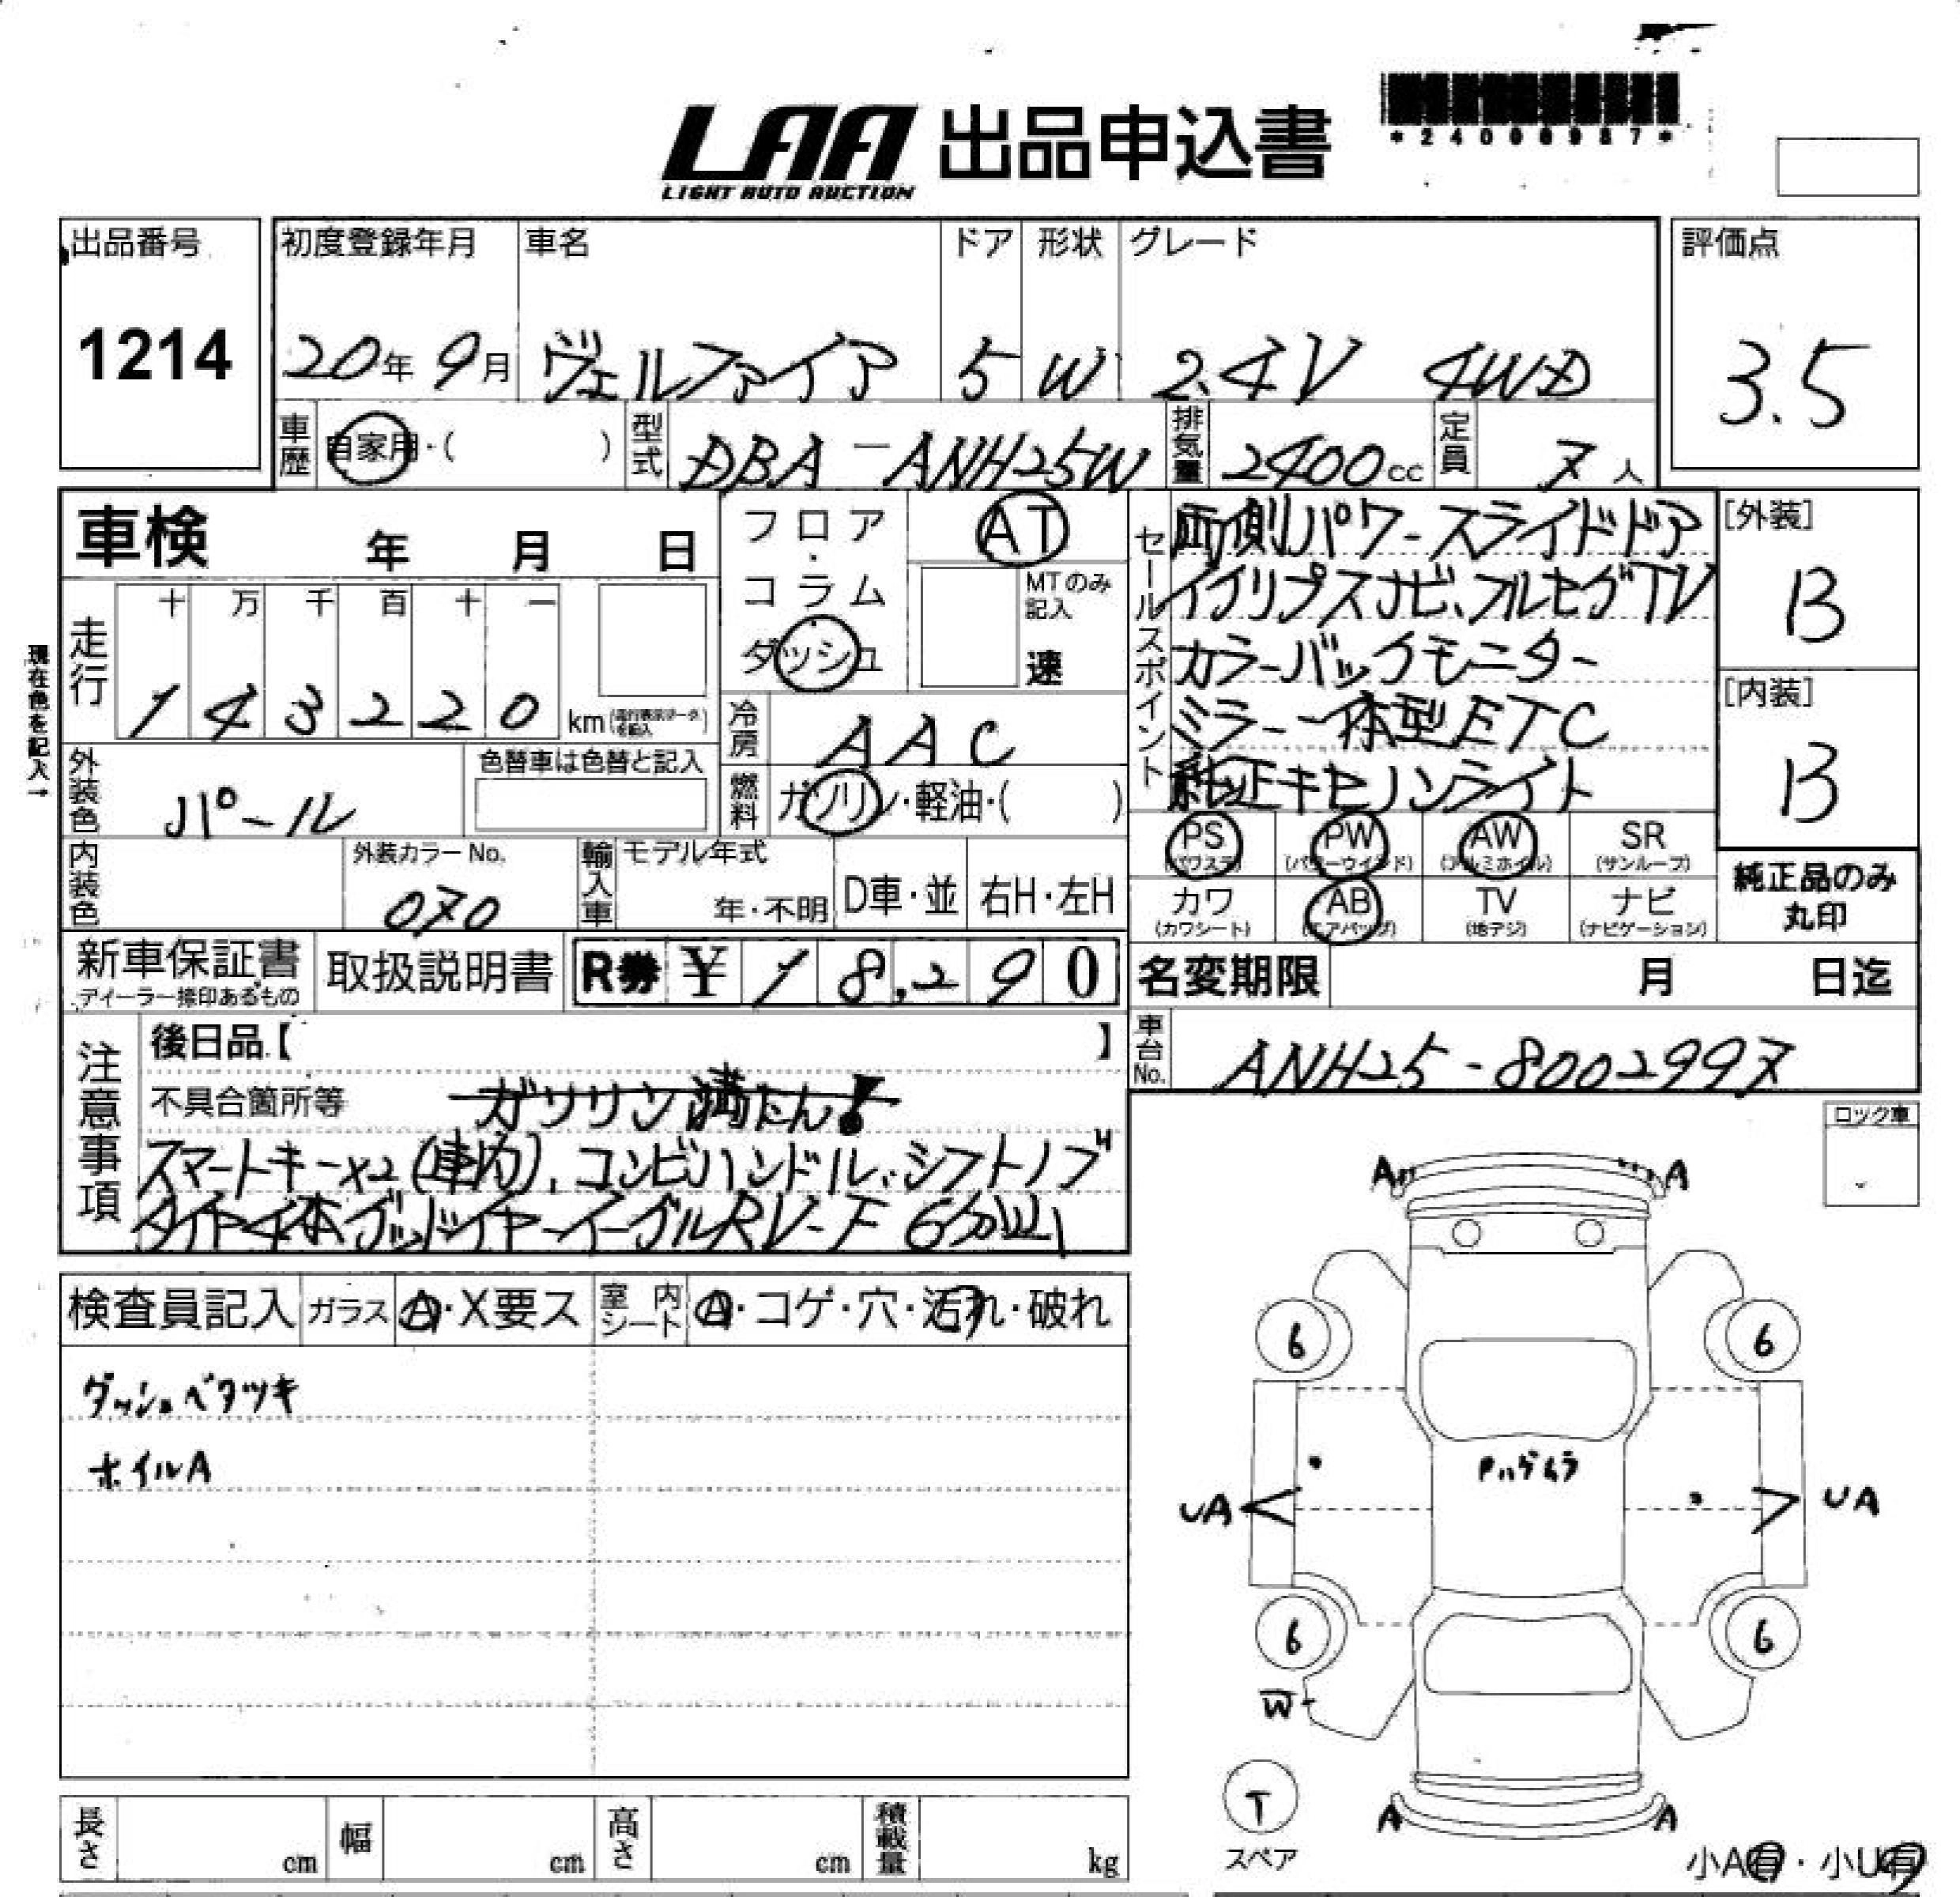 LAA 出品申込書
LIGHT AUTO AUCTION
出品番号
1214
初度登録年月
20年 9月
車名
ヴェルファイア
ドア
5
形状
W
グレード
2.4V 4WD
評価点
3.5
車歴
自家用・( )
型式
DBA-ANH25W
排気量
2400cc
定員
7人
車検 年 月 日
フロア・コラム・ダッシュ
AT
MTのみ記入
速
走行
十 万 千 百 十 一
1 4 3 2 2 0 km
現在色を記入→
外装色
パール
色替車は色替と記入
冷房
AAC
燃料
ガソリン・軽油・( )
内装色
外装カラーNo.
070
輸入車
モデル年式
年・不明
D車・並
右H・左H
セールスポイント
両側パワースライドドア
イクリプスナビ、フルセグTV
カラーバックモニター
ミラー一体型ETC
純正キセノンライト
[外装]
B
[内装]
B
PS (パワステ)
PW (パワーウインド)
AW (アルミホイル)
SR (サンルーフ)
カワ (カワシート)
AB (エアバッグ)
TV (地デジ)
ナビ (ナビゲーション)
純正品のみ
丸印
新車保証書
ディーラー捺印あるもの
取扱説明書
R券 ¥ 18,290
名変期限 月 日迄
車台No.
ANH25-8002997
注意事項
後日品【 】
不具合箇所等
ガソリン満たん!
スマートキー×2(車内)、コンビハンドル・シフトノブ
タイヤ4本グッドイヤーイーグルRV-F
ロック車
検査員記入
ガラス
A・X要ス
室内シート
A・コゲ・穴・汚れ・破れ
ダッシュベタツキ
ホイルA
A A
6 6
ハゲムラ
UA UA
6 6
W
T
スペア
A A
小A有・小U有
長さ cm
幅 cm
高さ cm
積載量 kg